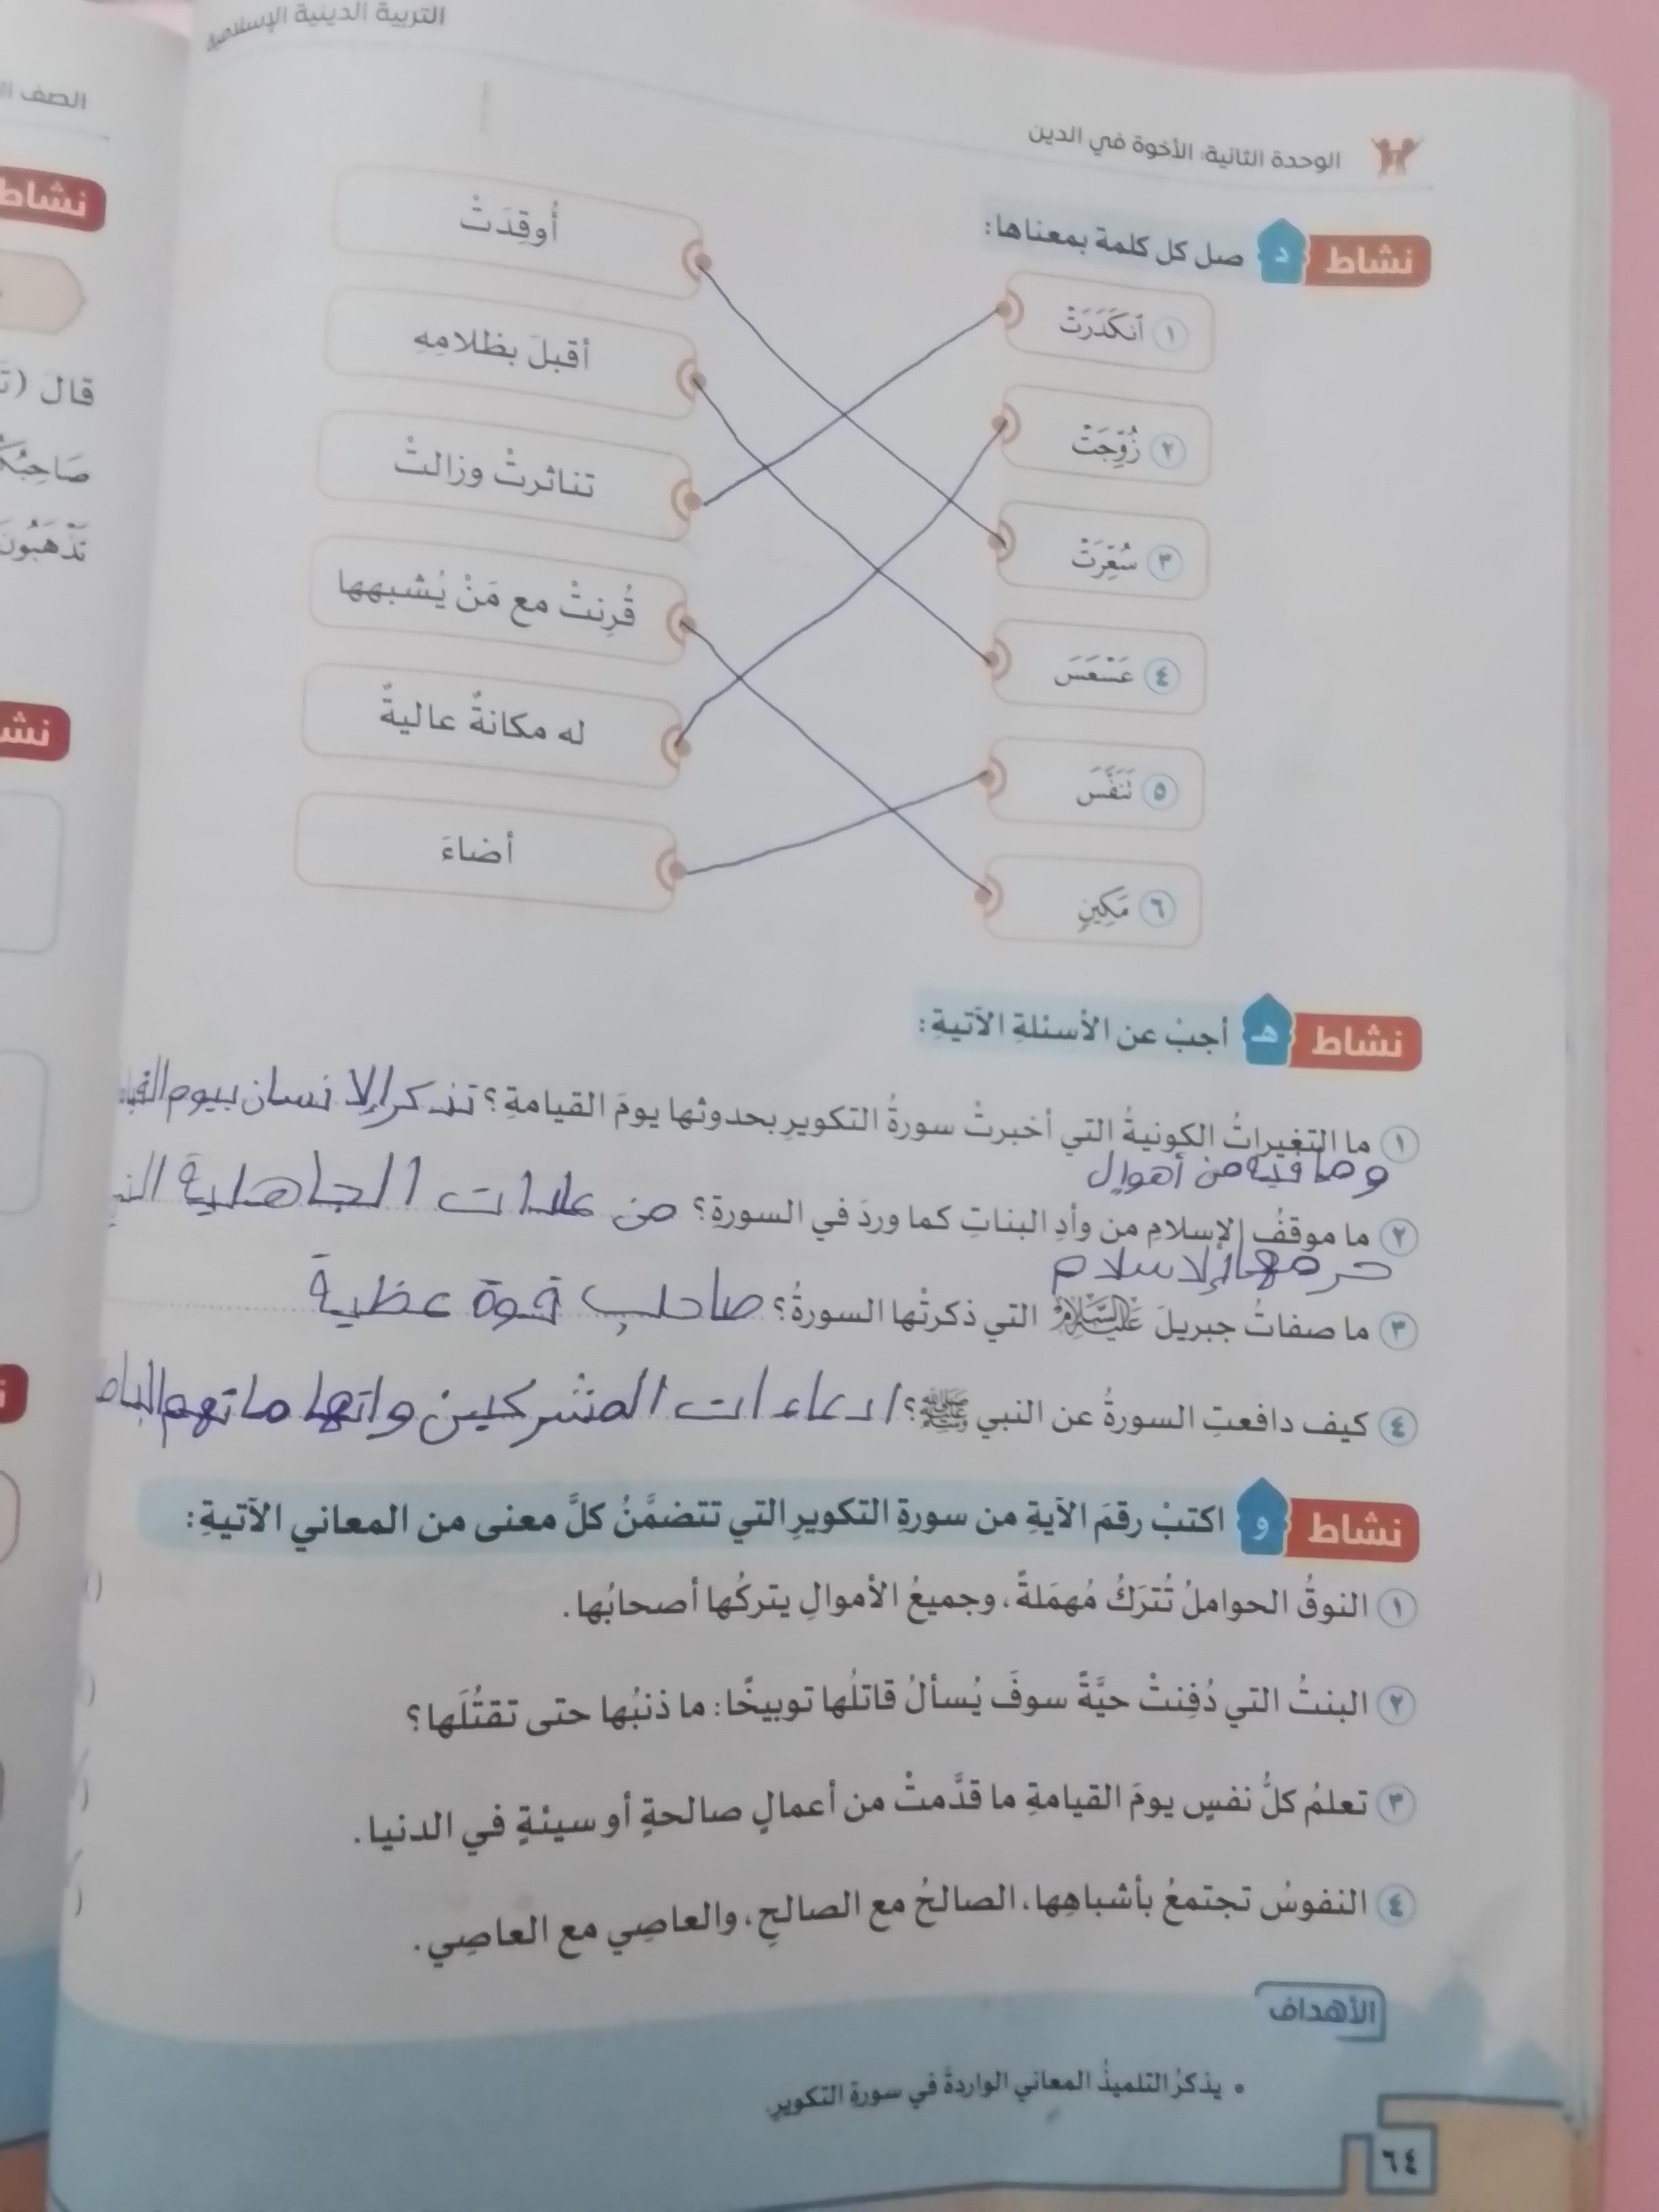 التربية الدينية الإسلامية
الوحدة الثانية: الأخوة في الدين
نشاط د صل كل كلمة بمعناها:
١ ٱنكَدَرَتْ
٢ زُوِّجَتْ
٣ سُعِّرَتْ
٤ عَسْعَسَ
٥ تَنَفَّسَ
٦ مَكِينٍ
أُوقِدَتْ
أقبلَ بظلامِهِ
تناثرتْ وزالتْ
قُرِنتْ مع مَنْ يُشبهها
له مكانةٌ عاليةٌ
أضاءَ
نشاط هـ أجبْ عن الأسئلةِ الآتيةِ:
١ ما التغيراتُ الكونيةُ التي أخبرتْ سورةُ التكويرِ بحدوثها يومَ القيامةِ؟ تذكر الإنسان بيوم
وما فيه من أهوال
٢ ما موقفُ الإسلامِ من وأدِ البناتِ كما وردَ في السورةِ؟ من عادات الجاهلية
حرمها الإسلام
٣ ما صفاتُ جبريلَ عَلَيْهِ السَّلَامُ التي ذكرتْها السورةُ؟ صاحب قوة عظية
٤ كيف دافعتِ السورةُ عن النبي ﷺ؟ ادعاءات المشركين واتهاماتهم
نشاط و اكتبْ رقمَ الآيةِ من سورةِ التكويرِ التي تتضمَّنُ كلَّ معنى من المعاني الآتيةِ:
١ النوقُ الحواملُ تُترَكُ مُهمَلةً، وجميعُ الأموالِ يتركُها أصحابُها.
٢ البنتُ التي دُفِنتْ حيَّةً سوفَ يُسألُ قاتلُها توبيخًا: ما ذنبُها حتى تقتُلَها؟
٣ تعلمُ كلُّ نفسٍ يومَ القيامةِ ما قدَّمتْ من أعمالٍ صالحةٍ أو سيئةٍ في الدنيا.
٤ النفوسُ تجتمعُ بأشباهِها، الصالحُ مع الصالحِ، والعاصِي مع العاصِي.
الأهداف
• يذكرُ التلميذُ المعاني الواردةَ في سورةِ التكويرِ
٦٤
الصف
نشاط
قال
تَذْهَبُونَ